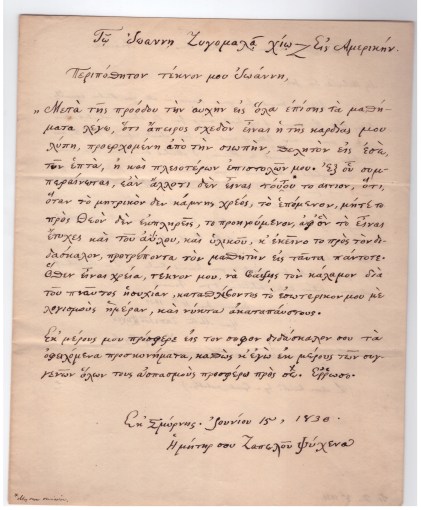 Τῷ Ἰωάννῃ Ζυγομαλᾷ Χίῳ Εἰς Ἀμερικήν.
Περιπόθητον τέκνον μου Ἰωάννη,
„Μετὰ τῆς προόδου τὴν εὐχὴν εἰς ὅλα ἐπίσης τὰ μαθή-
ματα λέγω, ὅτι ἄπειρος σχεδὸν εἶναι ἡ τῆς καρδίας μου
λύπη, προερχομένη ἀπὸ τὴν σιωπὴν,
τῶν ἑπτὰ, ἢ καὶ πλειοτέρων ἐπιστολῶν μου. Ἐξ οὗ συμ-
περαίνεται, ἐὰν ἄλλοτι δὲν εἶναι τούτου τὸ αἴτιον, ὅτι,
ὅταν τὸ μητρικὸν δὲν κάμνῃ χρέος, τὸ ἑπόμενον, μήτε τὸ
πρὸς Θεὸν δὲν ἐκπληροῖς, τὸ προηγούμενον, ἀφ' ὃν τὸ εἶναι
ἔτυχες καὶ τοῦ ἀΰλου, καὶ ὑλικοῦ, κ' ἐκεῖνο τὸ πρὸς τὸν δι-
δάσκαλον, προτρέποντα τὸν μαθητὴν εἰς ταῦτα πάντοτε.
Ὅθεν εἶναι χρεία, τέκνον μου, νὰ τὸν κάλαμον διὰ
τοῦ ἡσυχίαν, καταθλίβοντος τὸ ἐσωτερικόν μου με
ρισμοὺς ἡμέραν, καὶ νύκτα ἀκαταπαύστους.
Ἐκ μέρους μου πρόσφερε εἰς τὸν σοφὸν διδάσκαλόν σου τὰ
ὀφειλόμενα προσκυνήματα, καθὼς κ' ἐγὼ ἐκ μέρους τῶν συγ-
γενῶν ὅλων τοὺς ἀσπασμοὺς προσφέρω πρὸς σέ. Ἔρρωσο.
Ἐκ Σμύρνης. Ἰουνίου 15, 1830.
Ἡ μήτηρ σου Ζαπελοῦ Ψύχενα